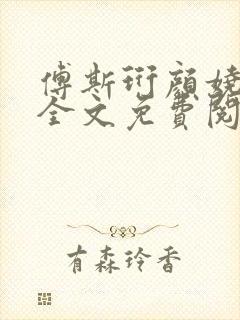 傅斯珩顏嬈
全文免費閱
有森玲香